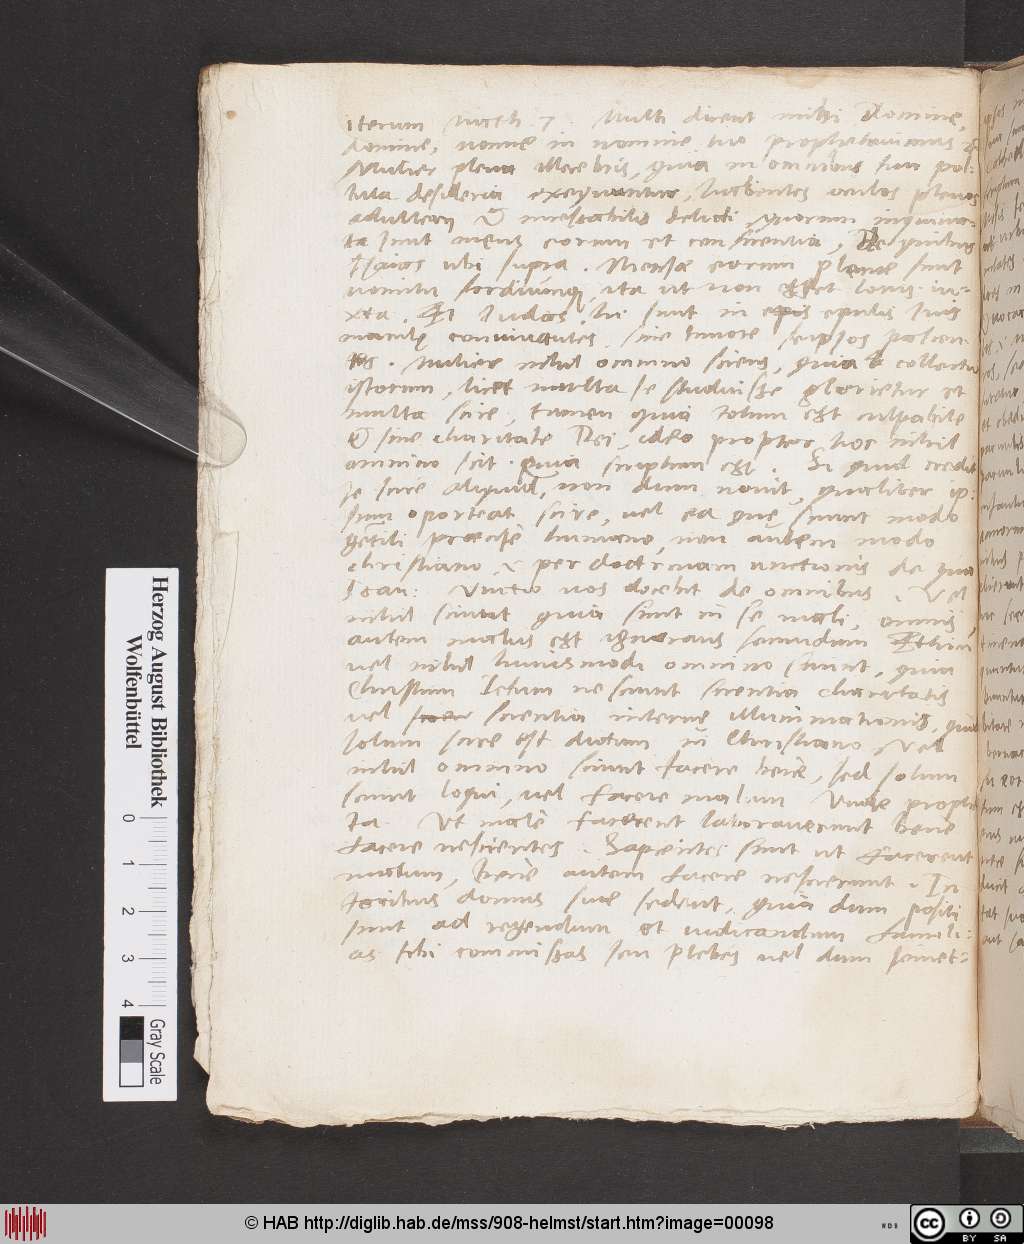 iterum Math. 7. Multi dicent mihi Domine,
domine, nonne in nomine tuo prophetavimus &
Mulier plena illecebris, quia in omnibus sua pol-
luta desideria exequuntur, habentes oculos plenos
adulterii & incessabilis delicti, quorum inquina-
ta sunt mens eorum et conscientia, De quibus
Isaias ubi supra. Mensae eorum plenae sunt
vomitu sordiumque, ita ut non esset locus ul-
tra. Et Iudas. hi sunt in epulis suis
maculę convivantes, sine timore seipsos pascen-
tes. Mulier nihil omnino sciens, quia collectio
istorum, licet multa se studuisse glorietur et
multa scire, tamen quia totum est culpabile
& sine charitate Dei, ideo propter hoc nihil
omnino scit. quia scriptum est. Si quis credit
se scire aliquid, non dum novit, qualiter ip-
sum oporteat scire, vel ea quę sciunt modo
gentili praecise humano, non autem modo
christiano, per doctrinam unctionis de qua
Ioan: Unctio vos docebit de omnibus. Vel
nihil sciunt quia sunt in se mali, omnis
autem malus est ignorans secundum
vel nihil huiusmodi omnino sciunt, quia
Christum Iesum nesciunt scientia charitatis
vel scientia internę illuminationis, quod
solum scire est dictum in Christiano, Vel
nihil omnino sciunt facere bene, sed solum
sciunt loqui, vel facere malum Unde prophe
ta. Ut malè facerent laboraverunt bene
facere nescientes. Sapientes sunt ut facerent
malum, benè autem facere nescierunt. In
foribus domus suae sedent, quia dum positi
sunt ad regendum et iudicandum famili-
as sibi commissas seu plebes vel dum semet-
Herzog August Bibliothek
Wolfenbüttel
0 1 2 3 4
Gray Scale
© HAB http://diglib.hab.de/mss/908-helmst/start.htm?image=00098
WDB
cc BY SA